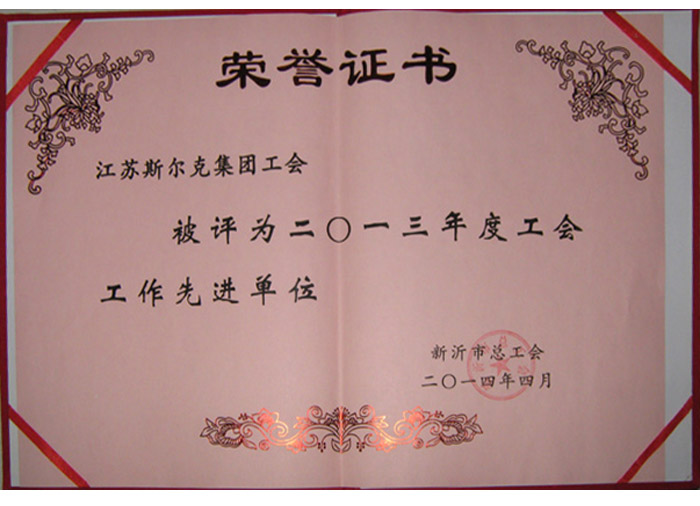 荣誉证书
江苏斯尔克集团工会
被评为二〇一三年度工会
工作先进单位
新沂市总工会
二〇一四年四月